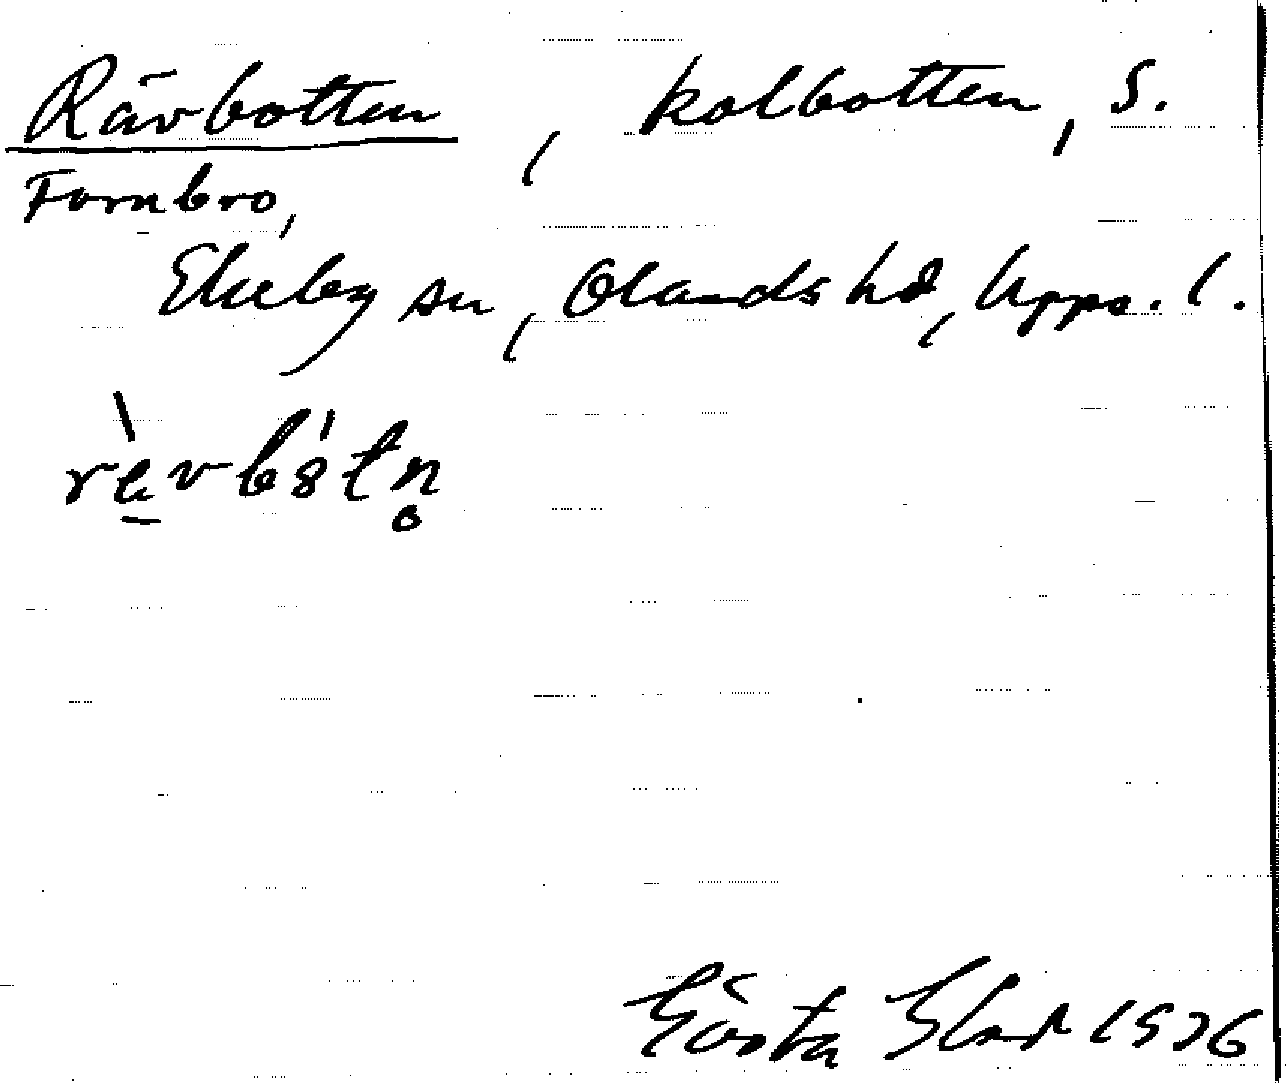 Rävbotten, kolbotten, S.
Fornbro,
Ekeby sn, Olands hd, Upps. l.
rèvbótn̥
Gösta 1926